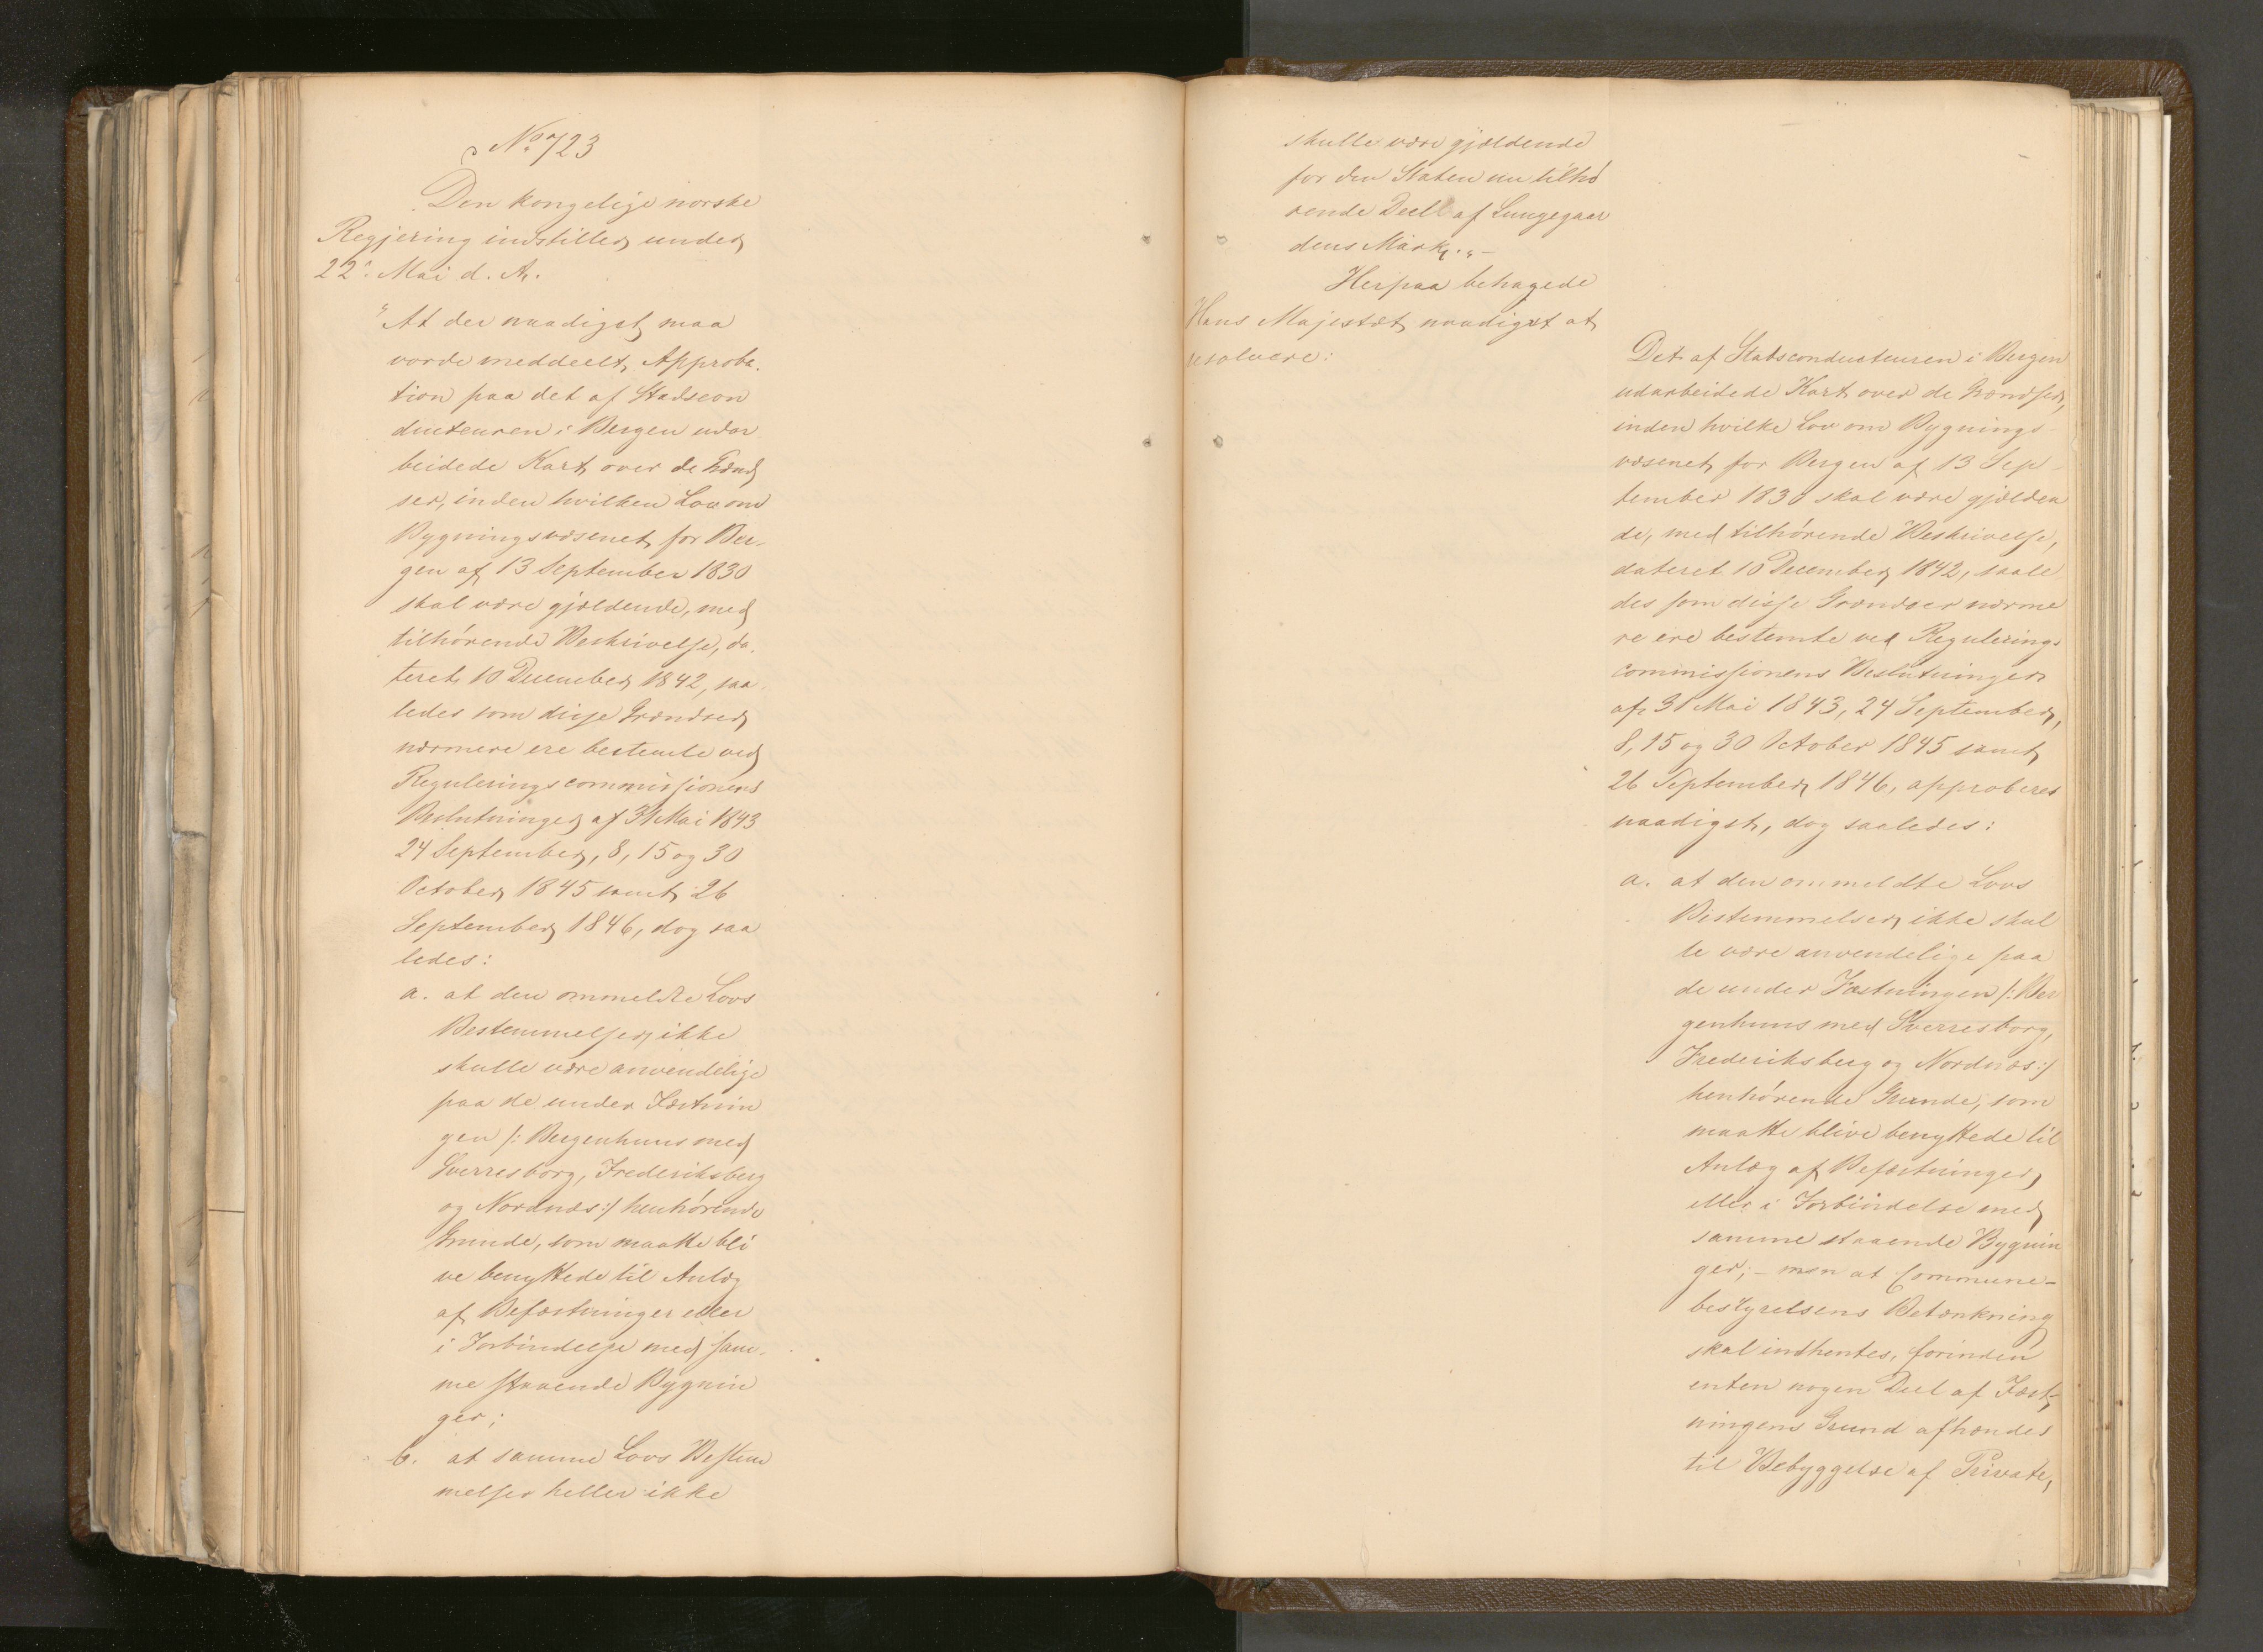 No. 723
Den kongelige norske
Regjering indstiller under
22. Mai d. A.
"At der naadigst maa
vorde meddeelt Approba-
tion paa det af Stadscon
ducteuren i Bergen udar
beidede Kart over de Grænd
ser, inden hvilken Lov om
Bygningsvæsenet for Ber-
gen af 13 September 1830
skal være gjældende, med
tilhørende Beskrivelse, da-
teret 10 December 1842, saa-
ledes som disse Grændser
nærmere ere bestemte ved
Reguleringscommissionens
Beslutninger af 31 Mai 1843
24 September, 8, 15 og 30
October 1845 samt 26
September 1846, dog saa
ledes:
a. at den ommeldte Lovs
Bestemmelser ikke
skulle være anvendelige
paa de under Fæstnin
gen /: Bergenhuus med
Sverresborg, Frederiksberg
og Nordnæs :/ henhørende
Grunde, som maatte bli
ve benyttede til Anlæg
af Befæstninger eller
i Forbindelse med sam-
me staaende Bygnin
ger;
b. at samme Lovs Bestem
melser heller ikke
skulle være gjældende
for den Staten nu tilhø
rende Deel af Lungegaar
dens Mark." -
Herpaa behagede
Hans Majestæt naadigst at
resolvere:
Det af Stadsconducteuren i Bergen
udarbeidede Kart over de Grændser,
inden hvilke Lov om Bygnings-
væsenet for Bergen af 13 Sep-
tember 1830 skal være gjælden
de, med tilhørende Beskrivelse,
dateret 10 December 1842, saale
des som disse Grændser nærme
re ere bestemte ved Regulerings
commissionens Beslutninger
af 31 Mai 1843, 24 September,
8, 15 og 30 October 1845 samt
26 September 1846, approberes
naadigst, dog saaledes:
a. at den ommeldte Lovs
Bestemmelser ikke skul
le være anvendelige paa
de under Fæstningen /: Ber
genhuus med Sverresborg,
Frederiksberg og Nordnæs :/
henhørende Grunde, som
maatte blive benyttede til
Anlæg af Befæstninger
eller i Forbindelse med
samme staaende Bygnin
ger; - men at Commune-
bestyrelsens Betænkning
skal indhentes, forinden
enten nogen Deel af Fæst-
ningens Grund afhændes
til Bebyggelse af Private,